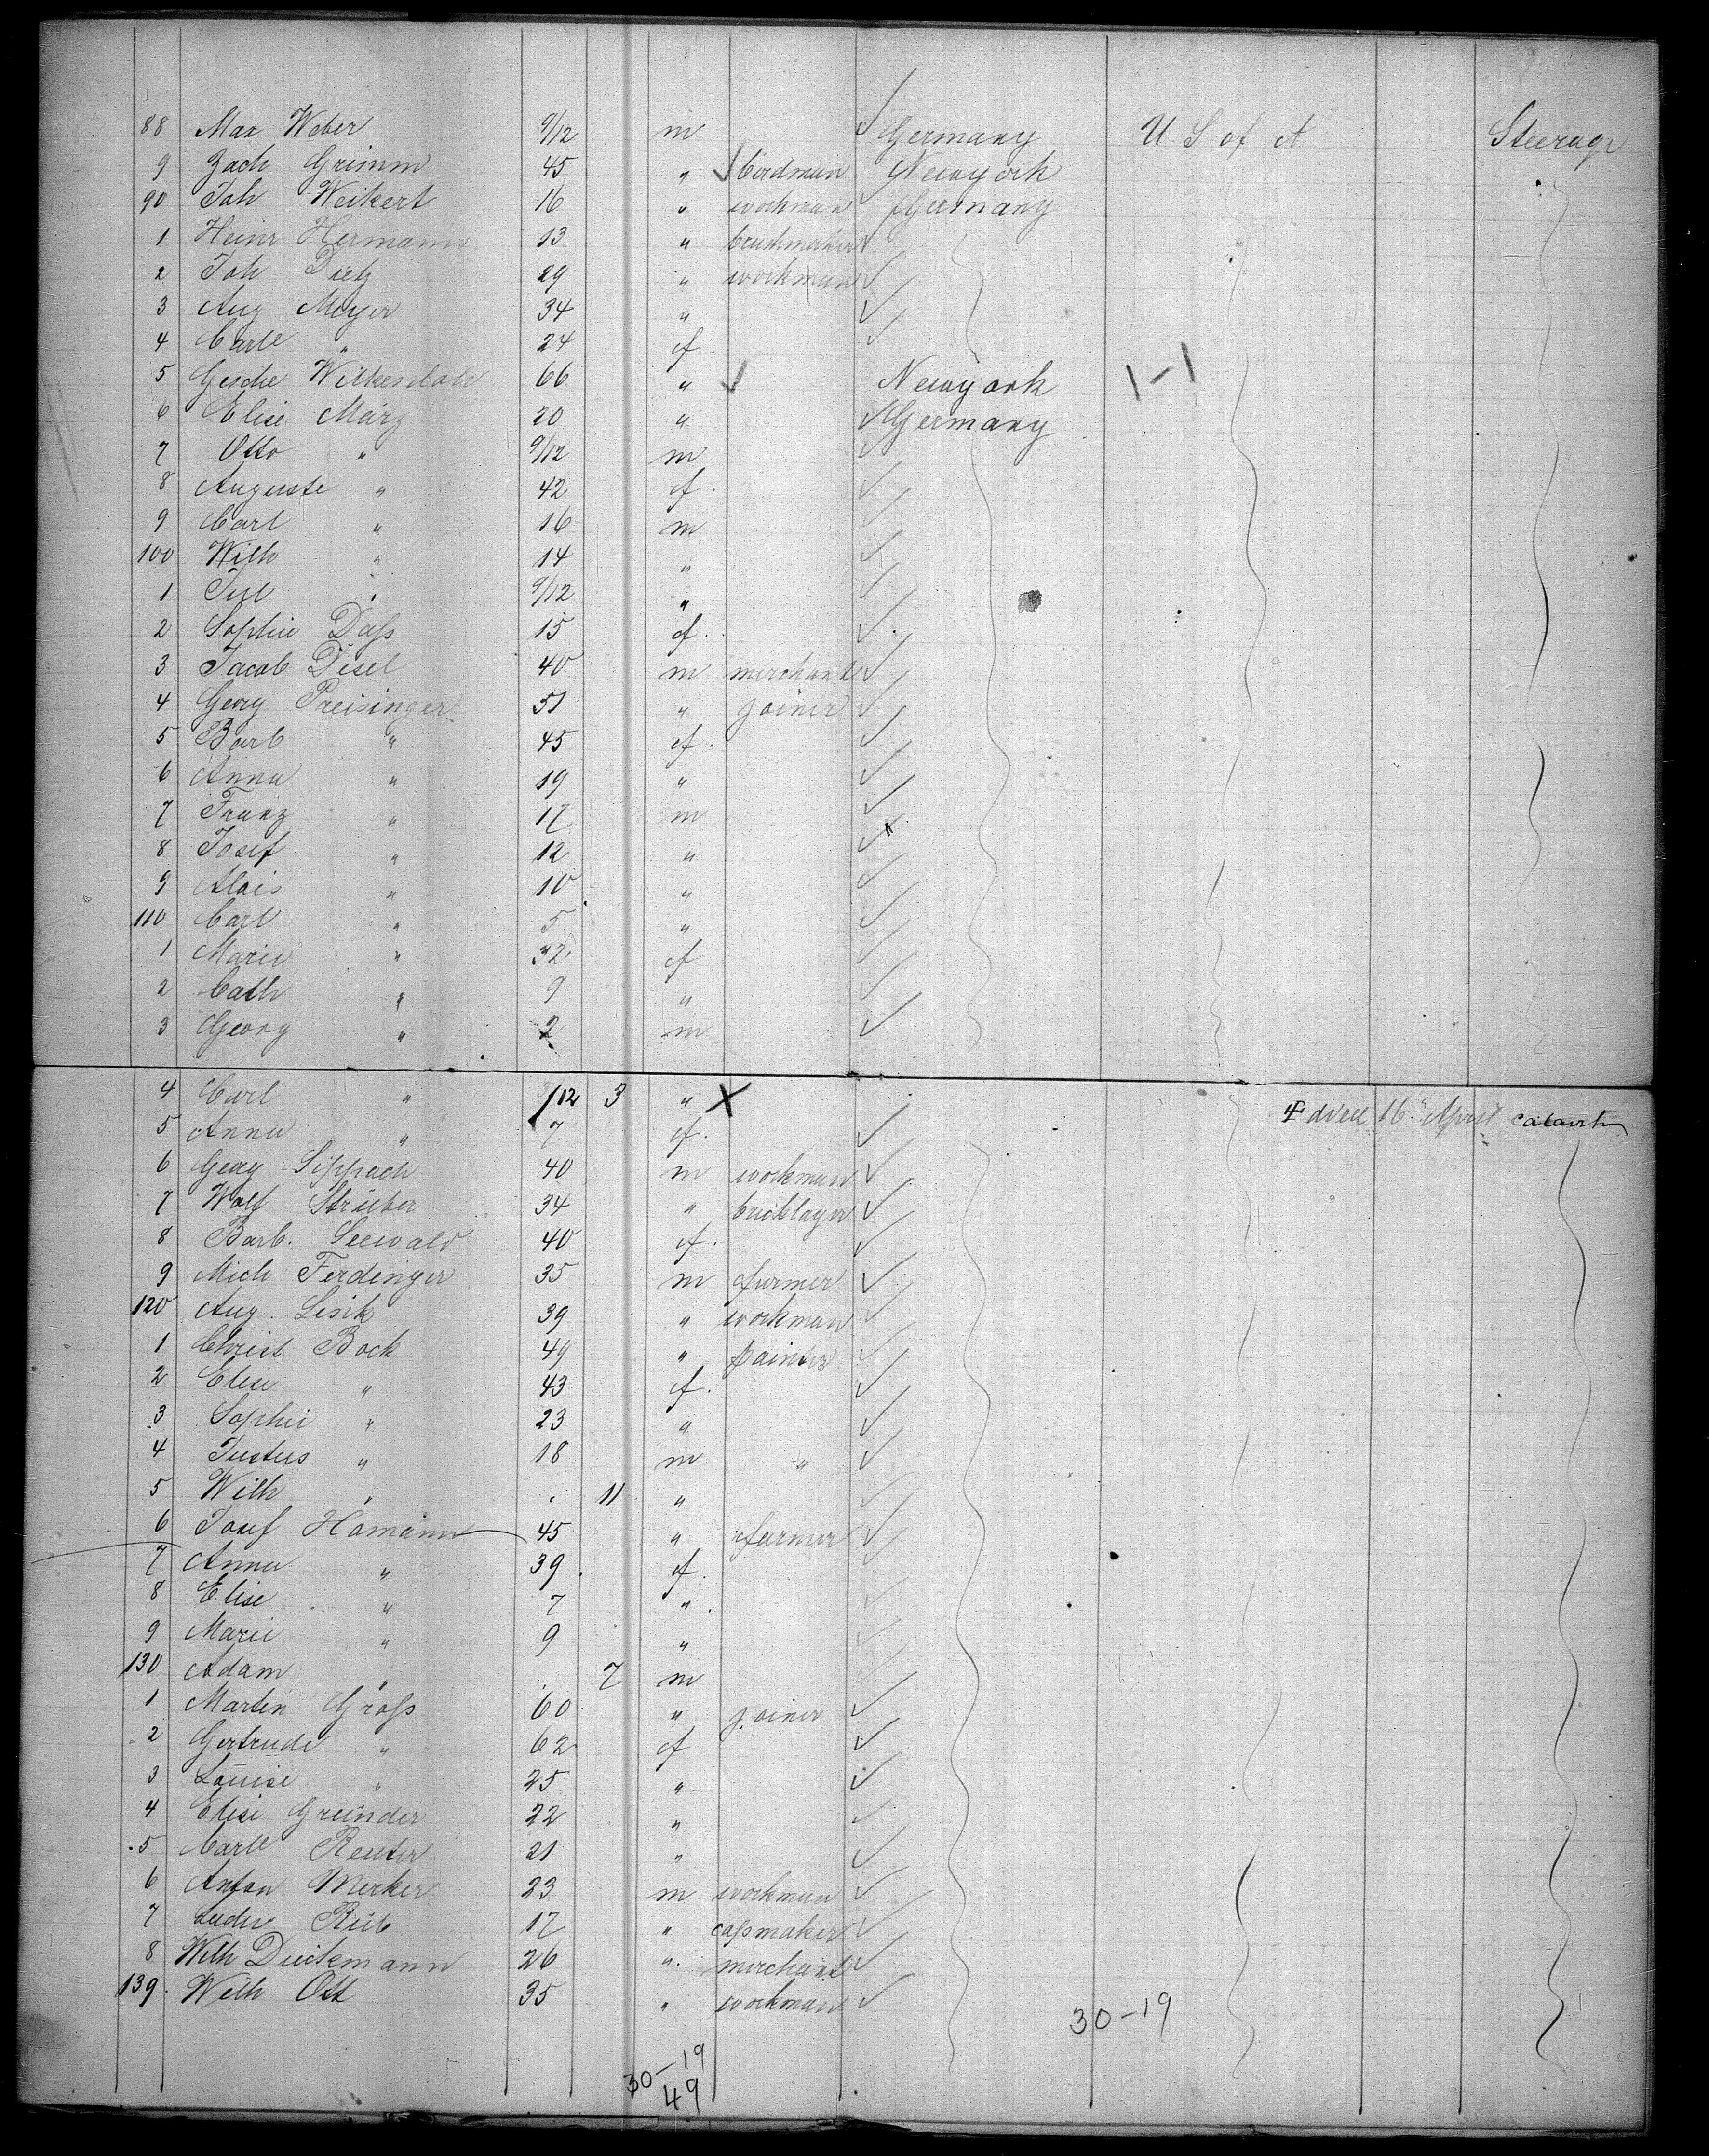 88 Max Weber 9/12 m Germany U S of A Steerage
9 Zach Grimm 45 " birdman Newyork
90 Joh Weikert 16 " workman Germany
1 Heinr Hermann 13 " brushmaker
2 Joh Dietz 29 " workman
3 Aug Meyer 34 "
4 Carle " 24 f
5 Gesche 66 " Newyork 1-1
6 Elise März 20 " Germany
7 Otto " 9/12 m
8 Auguste " 42 f.
9 Carl " 16 m
100 Wilh " 14 "
1 Jul " 9/12 "
2 Sophie Dass 15 f.
3 Jacob Disel 40 m merchant
4 Georg Preisinger 51 " joiner
5 Barb " 45 f.
6 Anna " 19 "
7 Franz " 17 m
8 Josef " 12 "
9 Alois " 10 "
110 Carl " 5 "
1 Marie " 32 f
2 Cath " 9 "
3 Georg " 2 m
4 Carl " /12 3 " X died 16. April
5 Anna " 7 f.
6 Georg Sippach 40 m workman
7 Wolf Strieber 34 " bricklayer
8 Barb. Seewald 40 f.
9 Mich Ferdinger 35 m farmer
120 Aug. Lesik 39 " workman
1 Christ Bock 49 " painter
2 Elise " 43 f.
3 Sophie " 23 "
4 Justus " 18 m "
5 Wilh " . 11 "
6 Josef Hamann 45 " farmer
7 Anna " 39 f.
8 Elise " 7 "
9 Marie " 9 "
130 Adam " 7 m
1 Martin Gross 60 " joiner
2 Gertrude " 62 f
3 Louise " 25 "
4 Elise Greinder 22 "
5 Carle Reuter 21 "
6 Anton Merker 23 m workman
7 Ludw 17 " capmaker
8 Wilh Dieckmann 26 " merchant
139. Wilh Ott 35 " workman
30-19
30-19
49